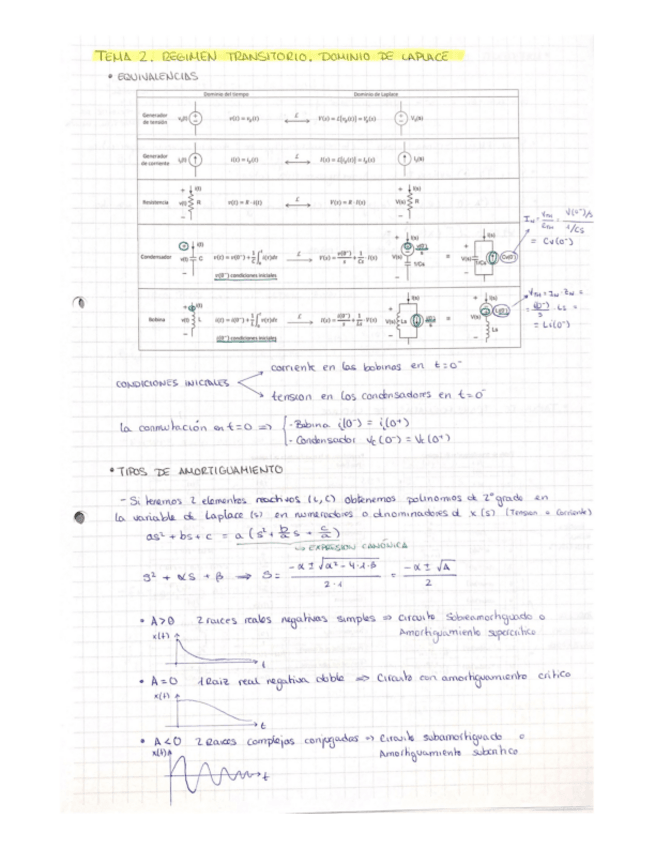 TEMA 2. REGIMEN TRANSITORIO. DOMINIO DE LAPLACE
• EQUIVALENCIAS
Dominio del tiempo Dominio de Laplace
Generador de tensión v(t) = v_g(t) ⟷ V(s) = L[v_g(t)] = V_g(s)
Generador de corriente i(t) = i_g(t) ⟷ I(s) = L[i_g(t)] = I_g(s)
Resistencia v(t) = R · i(t) ⟷ V(s) = R · I(s)
Condensador
v(0⁻) condiciones iniciales
I_N = V_TH / Z_TH = V(0⁻)/s / 1/Cs
= Cv(0⁻)
Bobina
i(0⁻) condiciones iniciales
V_TH = I_N · Z_N =
= i(0⁻)/s · Ls =
= Li(0⁻)
CONDICIONES INICIALES
corriente en las bobinas en t=0⁻
tension en los condensadores en t=0⁻
la conmutación en t=0 ⇒
- Bobina i_L(0⁻) = i_L(0+)
- Condensador V_c(0⁻) = V_c(0+)
• TIPOS DE AMORTIGUAMIENTO
- Si tenemos 2 elementos reactivos (L, C) obtenemos polinomios de 2º grado en
la variable de Laplace (s) en numeradores o dnominadores d x(s) (Tension o Corriente)
as² + bs + c = a (s² + b/a s + c/a)
↳ EXPRESION CANÓNICA
s² + αs + β → S = (-α ± √(α² - 4·1·β)) / 2·1 = (-α ± √A) / 2
• A>0 2 raices reales negativas simples ⇒ Circuito Sobreamortiguado o
Amortiguamiento supercritico
x(t)
t
• A=0 1 Raiz real negativa doble ⇒ Circuito con amortiguamiento crítico
x(t)
t
• A<0 2 Raices complejas conjugadas ⇒ Circuito subamortiguado o
Amortiguamiento subcritico
x(t)
t